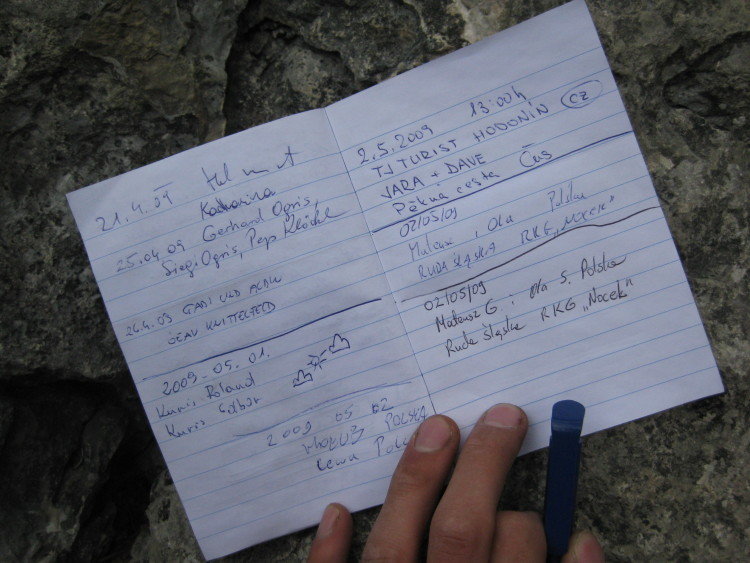 21.4.09. Helmut
Katharina
25.04.09 Gerhard Ogris,
Siegi Ogris, Pep
26.4.09 GABI UND ALBIN
ÖEAV KNITTELFELD
2009-05.01.
Kuris Roland
Kuris
2009 05 02
POLSKA
2.5.2009 13:00h
TJ TURIST HODONÍN CZ
JARA + DAVE
Pěkná cesta Čus
02/05/09
Mateusz i Ola Polska
RUDA ŚLĄSKA RKG „NOCEK"
02/05/09
Mateusz G. i Ola S. Polska
Ruda Śląska RKG „Nocek"